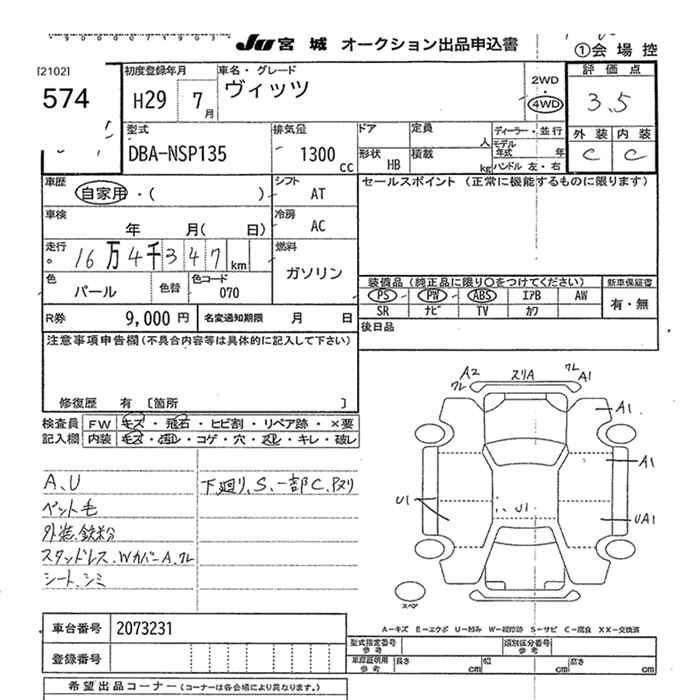 JU 宮城 オークション出品申込書
①会場控
[2102]
574
初度登録年月 H29 7月
車名・グレード ヴィッツ
2WD・4WD
評価点 3.5
型式 DBA-NSP135
排気量 1300cc
ドア
定員 人
ディーラー・並行
モデル年式 年
形状 HB
積載 kg
ハンドル 左・右
外装 C
内装 C
車歴 自家用・( )
シフト AT
セールスポイント (正常に機能するものに限ります)
車検 年 月( 日)
冷房 AC
走行 16万4千347km
燃料 ガソリン
色 パール
色替
色コード 070
装備品(純正品に限り○をつけてください)
新車保証書
PS PW ABS エアB AW
SR ナビ TV カワ
有・無
R券 9,000円
名変通知期限 月 日
後日品
注意事項申告欄(不具合内容等は具体的に記入して下さい)
修復歴 有 [箇所 ]
検査員記入欄
FW キズ・飛石・ヒビ割・リペア跡・×要
内装 キズ・汚れ・コゲ・穴・スレ・キレ・破レ
A2 ワレ
スリA
ワレ A1
A1
A1
U1
U1
UA1
A、U
ペット毛
外装、鉄粉
スタッドレス、Wカバー A、ワレ
シート、シミ
下廻り、S、一部C、Pヌリ
スペア
A―キズ E―エクボ U―凹み W―補修跡 S―サビ C―腐食 XX―交換済
車台番号 2073231
登録番号
型式指定番号 参考
類別区分番号 参考
車庫証明用 参考
長さ cm
幅 cm
高さ cm
希望出品コーナー (コーナーは各会場により異なります。)